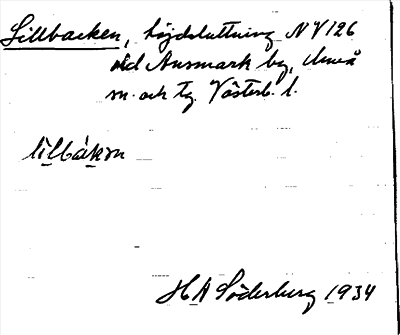 Lillbacken, höjdsluttning NV126
vid Ansmark by, Umeå
sn. och tg. Västerb. l.
lìlbákɒn
H A Söderberg 1934